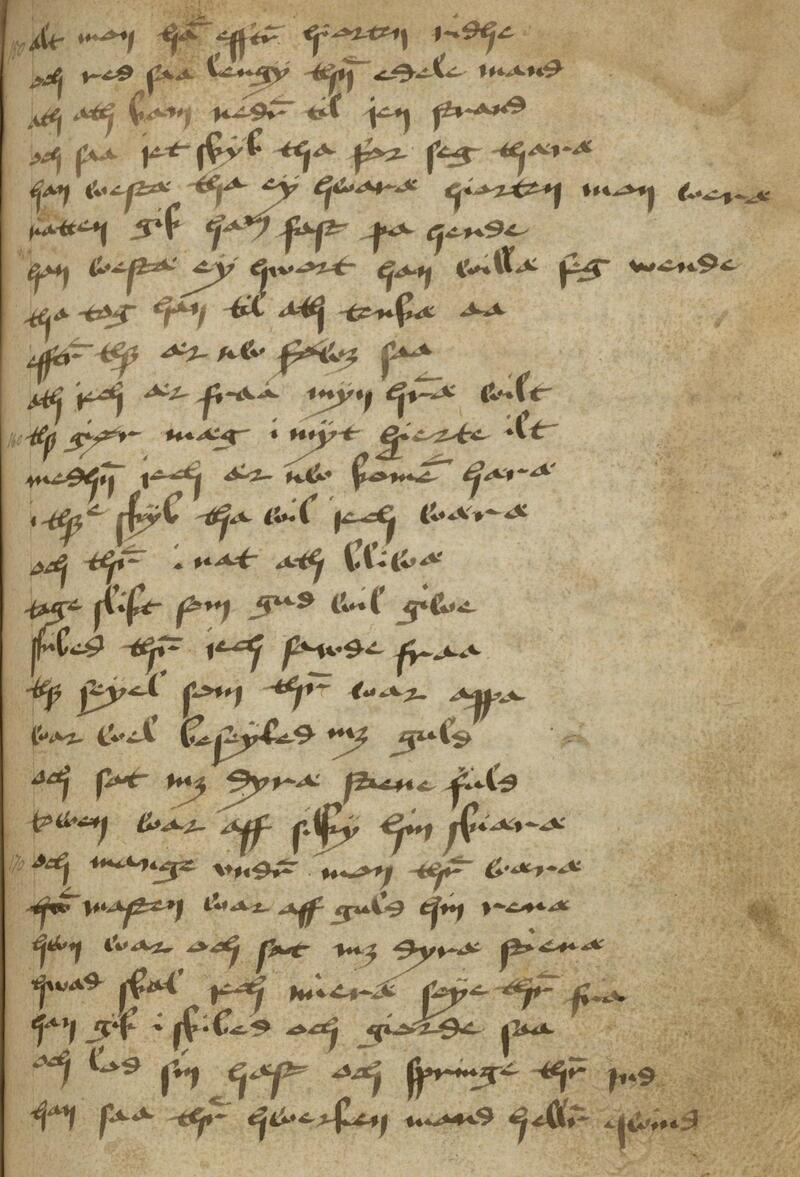 alt mon ha̅ efft̅r hiorten ridhe
och red saa lengy thn̅ edele mand
ath ath kam nedr̅ til jen strand
och saa jet skyb tha for seg thara
han westæ tha ey hwaræ hiorten mon weræ
natten gik ham fast pa hende
han westæ ey hwort han willæ seg wende
tha tog han til ath tenkæ aa
efft̅r thꝫ ær nw saa
ath jech ær fraa myn hr̅æ wilt
160 thꝫ giør mæg i myt hierte ilt
medhn̅ jech ær nw kome̅ haræ
i thꝫ skyb tha wil jech wæræ
och thr̅ i nat ath bliwæ
tage slikt som gud wil giwe
skibed thr̅ jech sawde fraa
thꝫ seyel som thr̅ war appa
war wel beseyled mꝫ guld
och sat mꝫ dyræ stene fuld
towen war aff silky hin skiaræ
170 och mange vndr̅ mon thr̅ wæræ
masten war aff guld hin renæ
hwn war och sat mꝫ dyræ stienæ
hwad skal jech mieræ seye thr̅ fra
han gik i skibed och giorde saa
och lod sin hæst och springe thr̅ ind
han saa thr̅ hwerken mand hellr̅ qwind